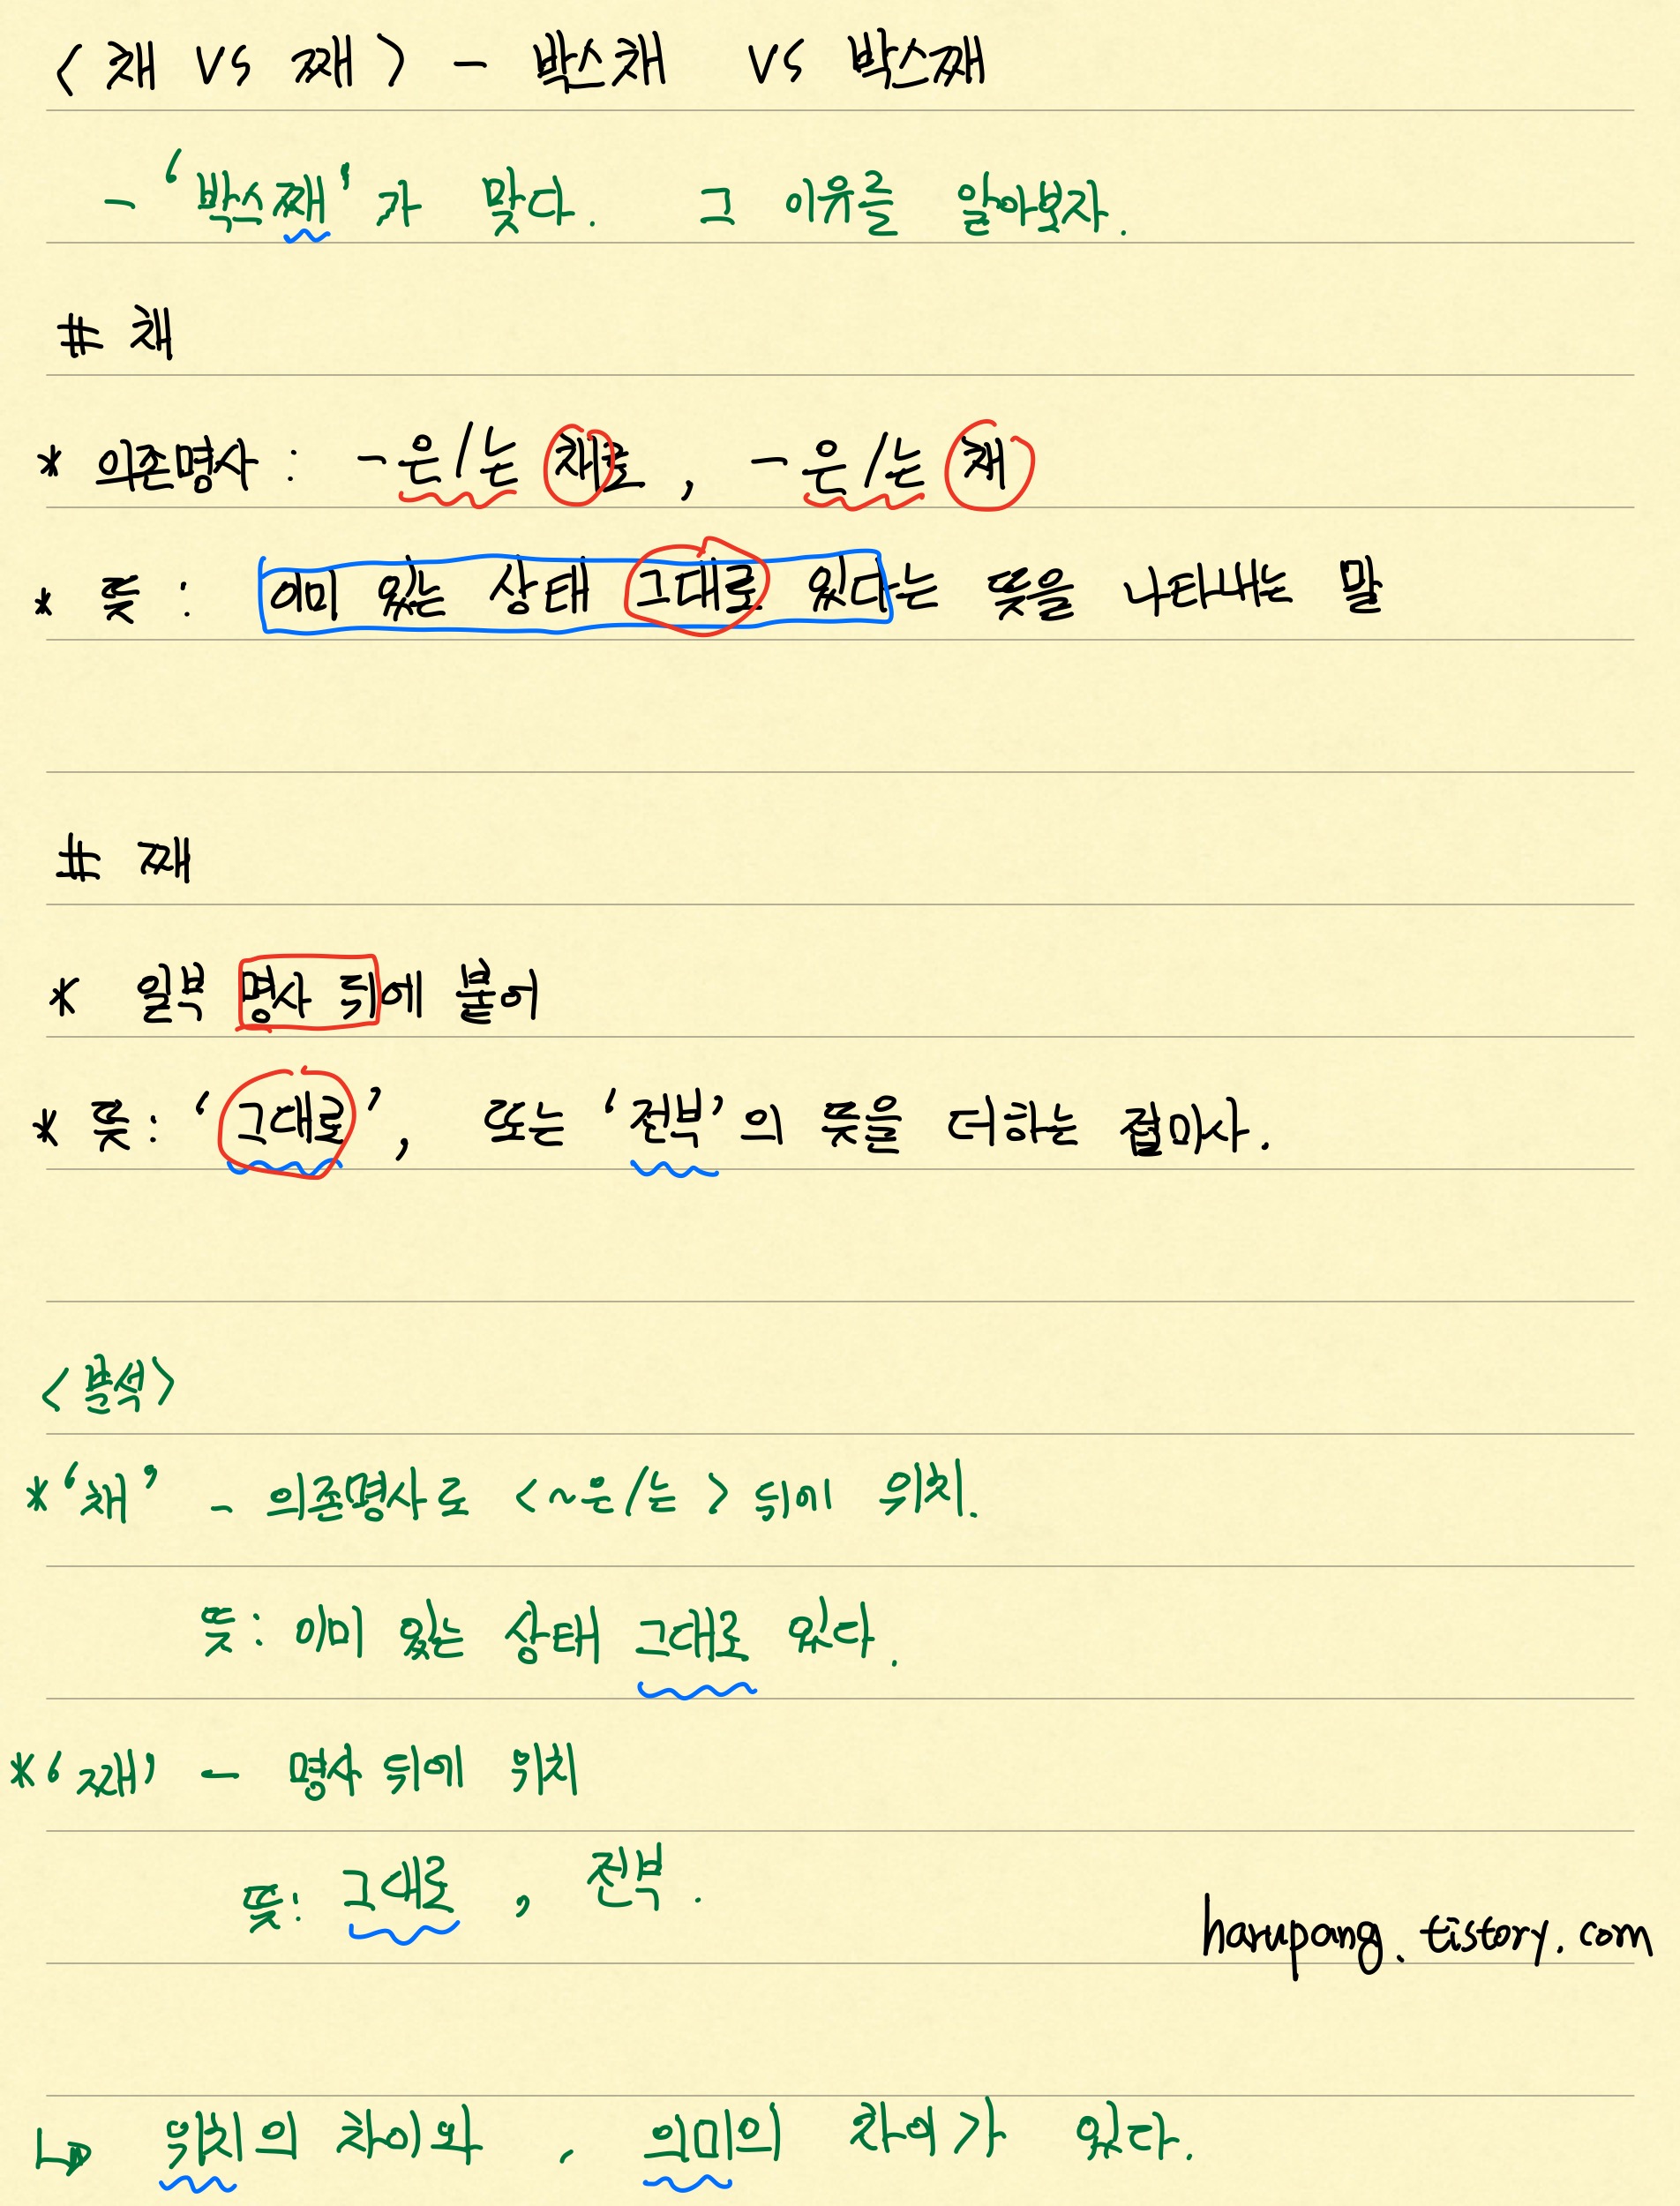 < 채 vs 째 > - 박스채 vs 박스째
- '박스째'가 맞다. 그 이유를 알아보자.
# 채
* 의존명사 : -은/는 채로, -은/는 채
* 뜻 : 이미 있는 상태 그대로 있다는 뜻을 나타내는 말
# 째
* 일부 명사 뒤에 붙어
* 뜻 : '그대로', 또는 '전부'의 뜻을 더하는 접미사.
<분석>
* '채' - 의존명사로 <~은/는 > 뒤에 위치.
뜻 : 이미 있는 상태 그대로 있다.
* '째' - 명사 뒤에 위치
뜻 : 그대로, 전부.
harupang.tistory.com
↳ 위치의 차이와, 의미의 차이가 있다.